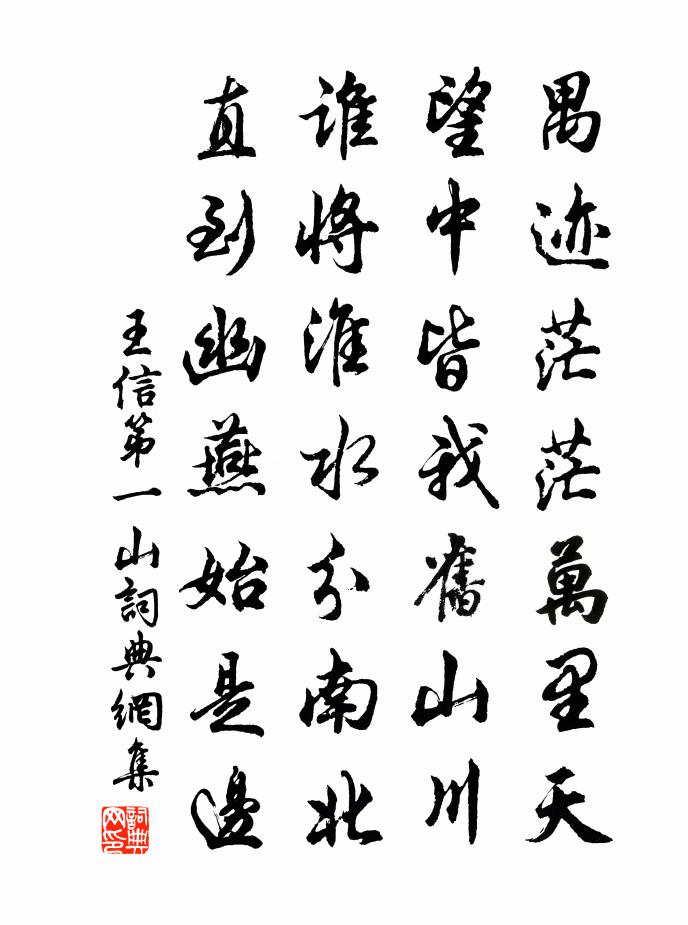 禹迹茫茫萬里天
望中皆我舊山川
誰將淮水分南北
直到幽燕始是邊
王信第一山詞典網集
詞典网印